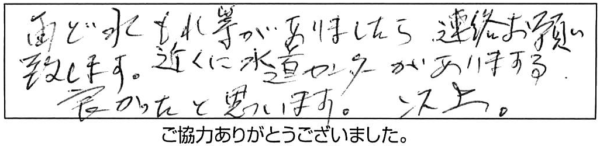 面ど水もれ等がありましたら連絡お願い
致します。近くに水道センターがありまする
良かったと思います。以上。
ご協力ありがとうございました。